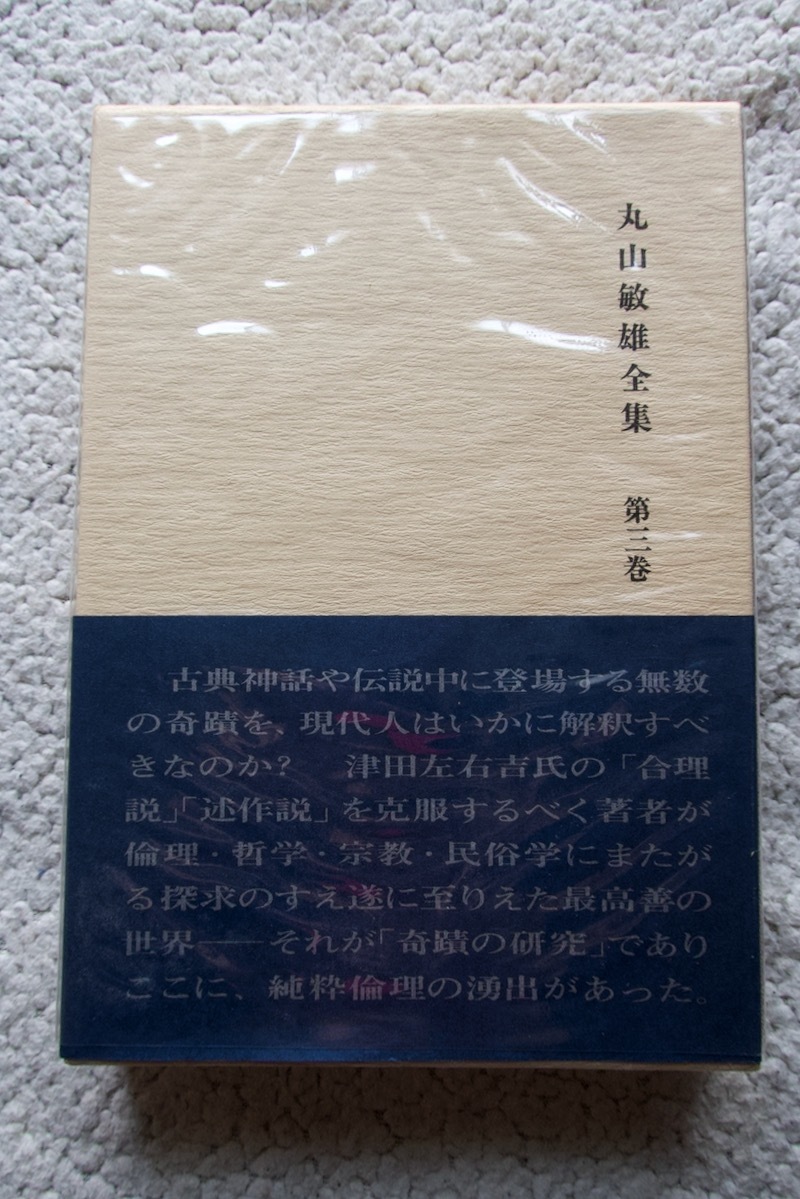 丸山敏雄全集 第三巻
古典神話や伝説中に登場する無数
の奇蹟を、現代人はいかに解釈すべ
きなのか? 津田左右吉氏の「合理
説」「述作説」を克服するべく著者が
倫理・哲学・宗教・民俗学にまたが
る探求のすえ遂に至りえた最高善の
世界——それが「奇蹟の研究」であり
ここに、純粋倫理の湧出があった。